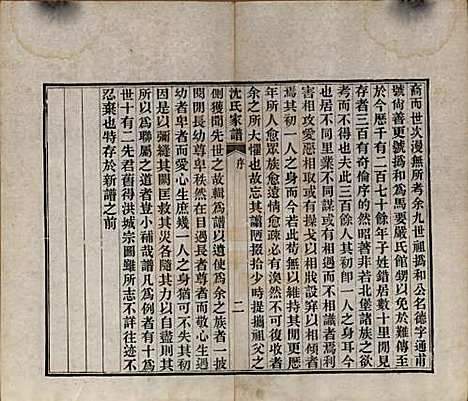 裔而世次漫無所考余九世祖爲和公名德字通甫
號尙善更號爲和爲馬要嚴氏館甥以免於難傳至
於今曆千有二百七十餘年子姓錯居數十里閒見
存者三百有奇倫序的然昭著非若北堡諸族之欲
考而不可得也夫此三百餘人其初卽一人之身耳今
也居不同業不同不同謀或有相遇而不相識者焉利
害相攻愛惡相取或有操戈以相戕設以相傾者
焉其初一人之身而今若此苟無以維持其閒更歷
年所人愈眾族愈遠情愈疏必有渙然不可復合者
余之所大懼也故忘其譾陋掇拾少時提攜祖父之
沈氏家譜
序
二
側獲聞先世之故輯爲譜以遺使爲余之族者披
閱閒長幼尊卑秩然在目過長者尊者而敬心生過
幼者卑者而愛心生庶幾一人之身猶可不失其初
因是以彌縫其闕救其災各隨其力以自盡則其
所以爲聯屬之道者豈小補哉譜凡爲例者有十爲
世十有二先君舊得洪城宗圖雖所志不詳往迹不
忍棄也特存於新譜之前